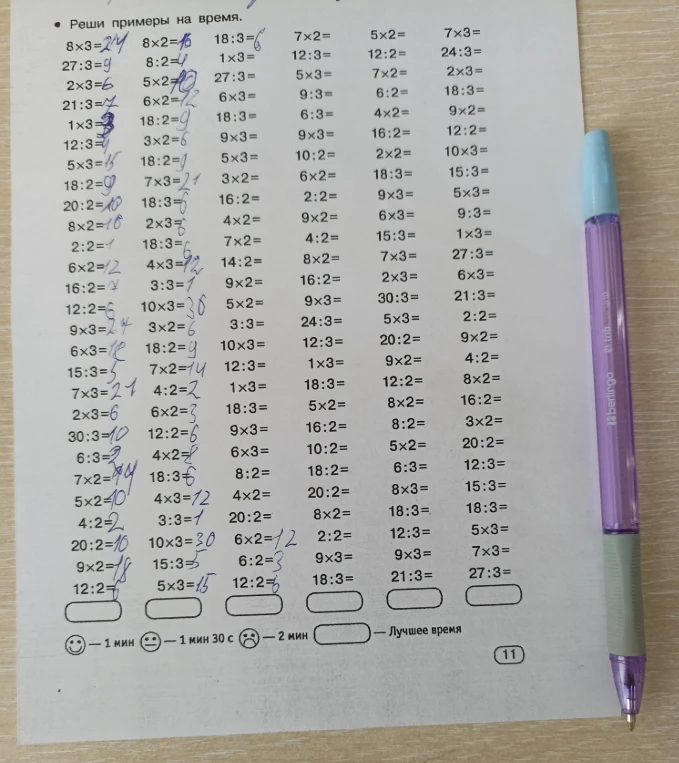 • Реши примеры на время.
8×3=24 8×2=16 18:3=6 7×2= 5×2= 7×3=
27:3=9 8:2=4 1×3= 12:3= 12:2= 24:3=
2×3=6 5×2=10 27:3= 5×3= 7×2= 2×3=
21:3=7 6×2=12 6×3= 9:3= 6:2= 18:3=
1×3=3 18:2=9 18:3= 6:3= 4×2= 9×2=
12:3=4 3×2=6 9×3= 9×3= 16:2= 12:2=
5×3=15 18:2=9 5×3= 10:2= 2×2= 10×3=
18:2=9 7×3=21 3×2= 6×2= 18:3= 15:3=
20:2=10 18:3=6 16:2= 2:2= 9×3= 5×3=
8×2=16 2×3=6 4×2= 9×2= 6×3= 9:3=
2:2=1 18:3=6 7×2= 4:2= 15:3= 1×3=
6×2=12 4×3=12 14:2= 8×2= 7×3= 27:3=
16:2= 3:3=1 9×2= 16:2= 2×3= 6×3=
12:2=6 10×3=30 5×2= 9×3= 30:3= 21:3=
9×3=27 3×2=6 3:3= 24:3= 5×3= 2:2=
6×3=18 18:2=9 10×3= 12:3= 20:2= 9×2=
15:3=5 7×2=14 12:3= 1×3= 9×2= 4:2=
7×3=21 4:2=2 1×3= 18:3= 12:2= 8×2=
2×3=6 6×2=3 18:3= 5×2= 8×2= 16:2=
30:3=10 12:2=6 9×3= 16:2= 8:2= 3×2=
6:3=2 4×2=8 6×3= 10:2= 5×2= 20:2=
7×2=14 18:3=6 8:2= 18:2= 6:3= 12:3=
5×2=10 4×3=12 4×2= 20:2= 8×3= 15:3=
4:2=2 3:3=1 20:2= 8×2= 18:3= 18:3=
20:2=10 10×3=30 6×2=12 2:2= 12:3= 5×3=
9×2=18 15:3=5 6:2=3 9×3= 9×3= 7×3=
12:2=6 5×3=15 12:2=6 18:3= 21:3= 27:3=
— 1 мин — 1 мин 30 с — 2 мин — Лучшее время
11
berlingo